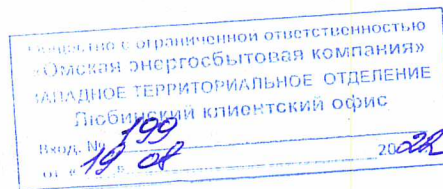 Общество с ограниченной ответственностью
«Омская энергосбытовая компания»
ЗАПАДНОЕ ТЕРРИТОРИАЛЬНОЕ ОТДЕЛЕНИЕ
Любинский клиентский офис
Вход. № 199
от «19» 08 2022